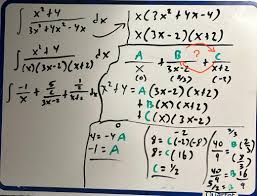 ∫ x²+4 / 3x³+4x²-4x dx
x(3x²+4x-4)
x(3x-2)(x+2)
∫ x²+4 / (x)(3x-2)(x+2) dx
A/x + B/3x-2 + C/x+2
?
(0) (2/3) (-2)
∫ -1/x + 5/2 / 3x-2 + 1/2 / x+2 dx
x²+4 = A(3x-2)(x+2)
+B(x)(x+2)
+C(x)(3x-2)
0
4 = -4A
-1 = A
-2
8 = C(-2)(-8)
8 = C(16)
C = 1/2
2/3
40/9 = B(2/3)(8/3)
40/9 = B 16/9
5/2 = B